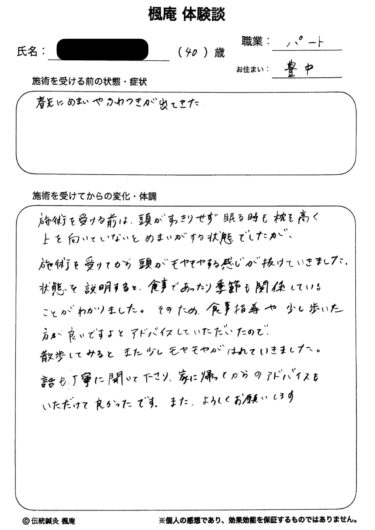 楓庵 体験談
氏名：
（40）歳
職業： パート
お住まい： 豊中
施術を受ける前の状態・症状
にめまいやふわつきが出てきた
施術を受けてからの変化・体調
施術を受ける前は、頭がすっきりせず 眠る時も枕を高く
上を向いていないとめまいがする状態でしたが、
施術を受けてから 頭がモヤモヤする感じが抜けていきました。
状態を説明すると、食事であったり季節も関係している
ことがわかりました。そのため、食事指導や少し歩いた
方が良いですよとアドバイスしていただいたので
散歩してみると また少しモヤモヤがはれていきました。
話も丁寧に聞いて下さり、家に帰ってからのアドバイスも
いただけて良かったです。また、よろしくお願いします
©伝統鍼灸 楓庵
※個人の感想であり、効果効能を保証するものではありません。